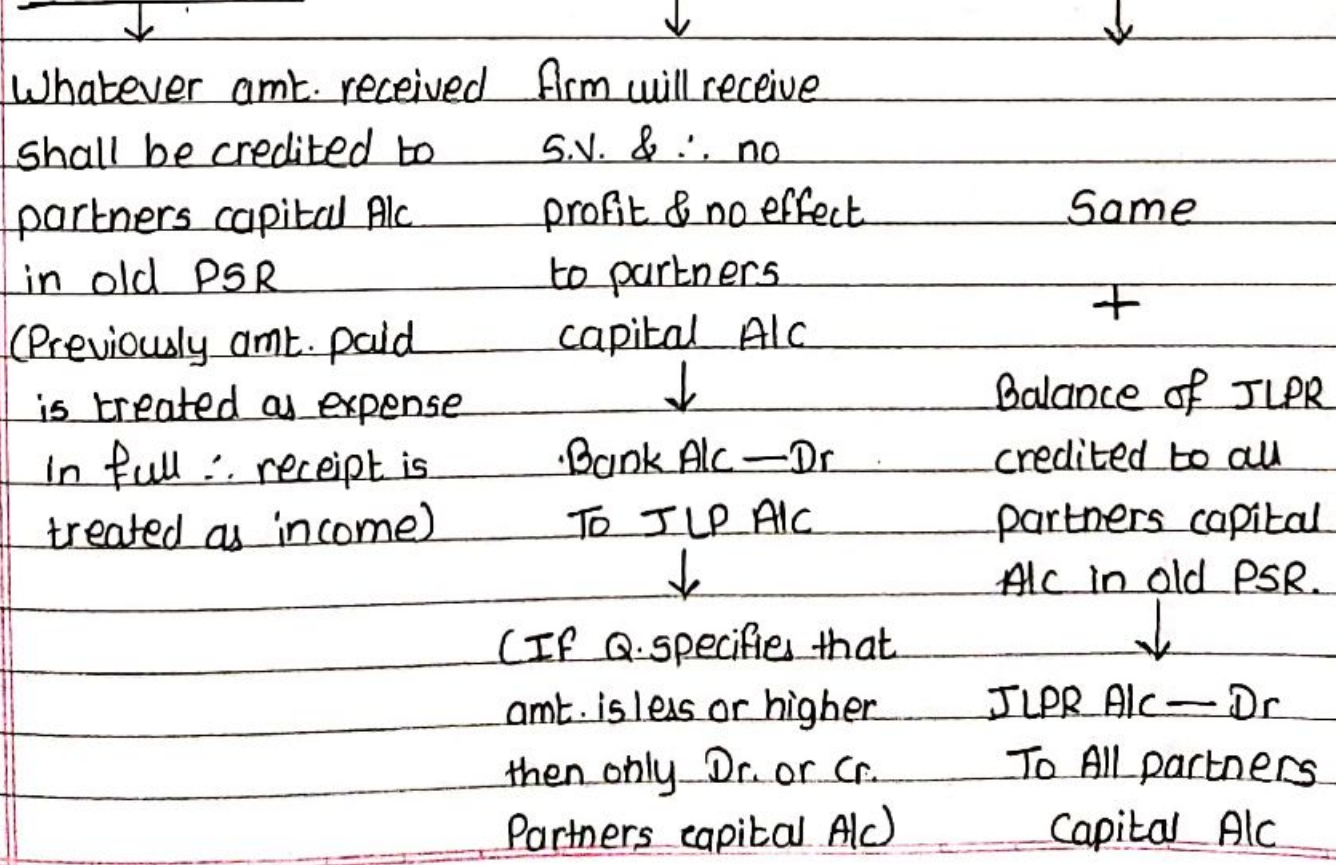 Whatever amt. received
shall be credited to
partners capital A/c
in old PSR
(Previously amt. paid
is treated as expense
in full ∴ receipt is
treated as income)
Firm will receive
S.V. & ∴ no
profit & no effect
to partners
capital A/c
↓
Bank A/c — Dr
To JLP A/c
↓
(If Q. specifies that
amt. is less or higher
then only Dr. or Cr.
Partners capital A/c)
Same
+
Balance of JLPR
credited to all
partners capital
A/c in old PSR.
↓
JLPR A/c — Dr
To All partners
Capital A/c